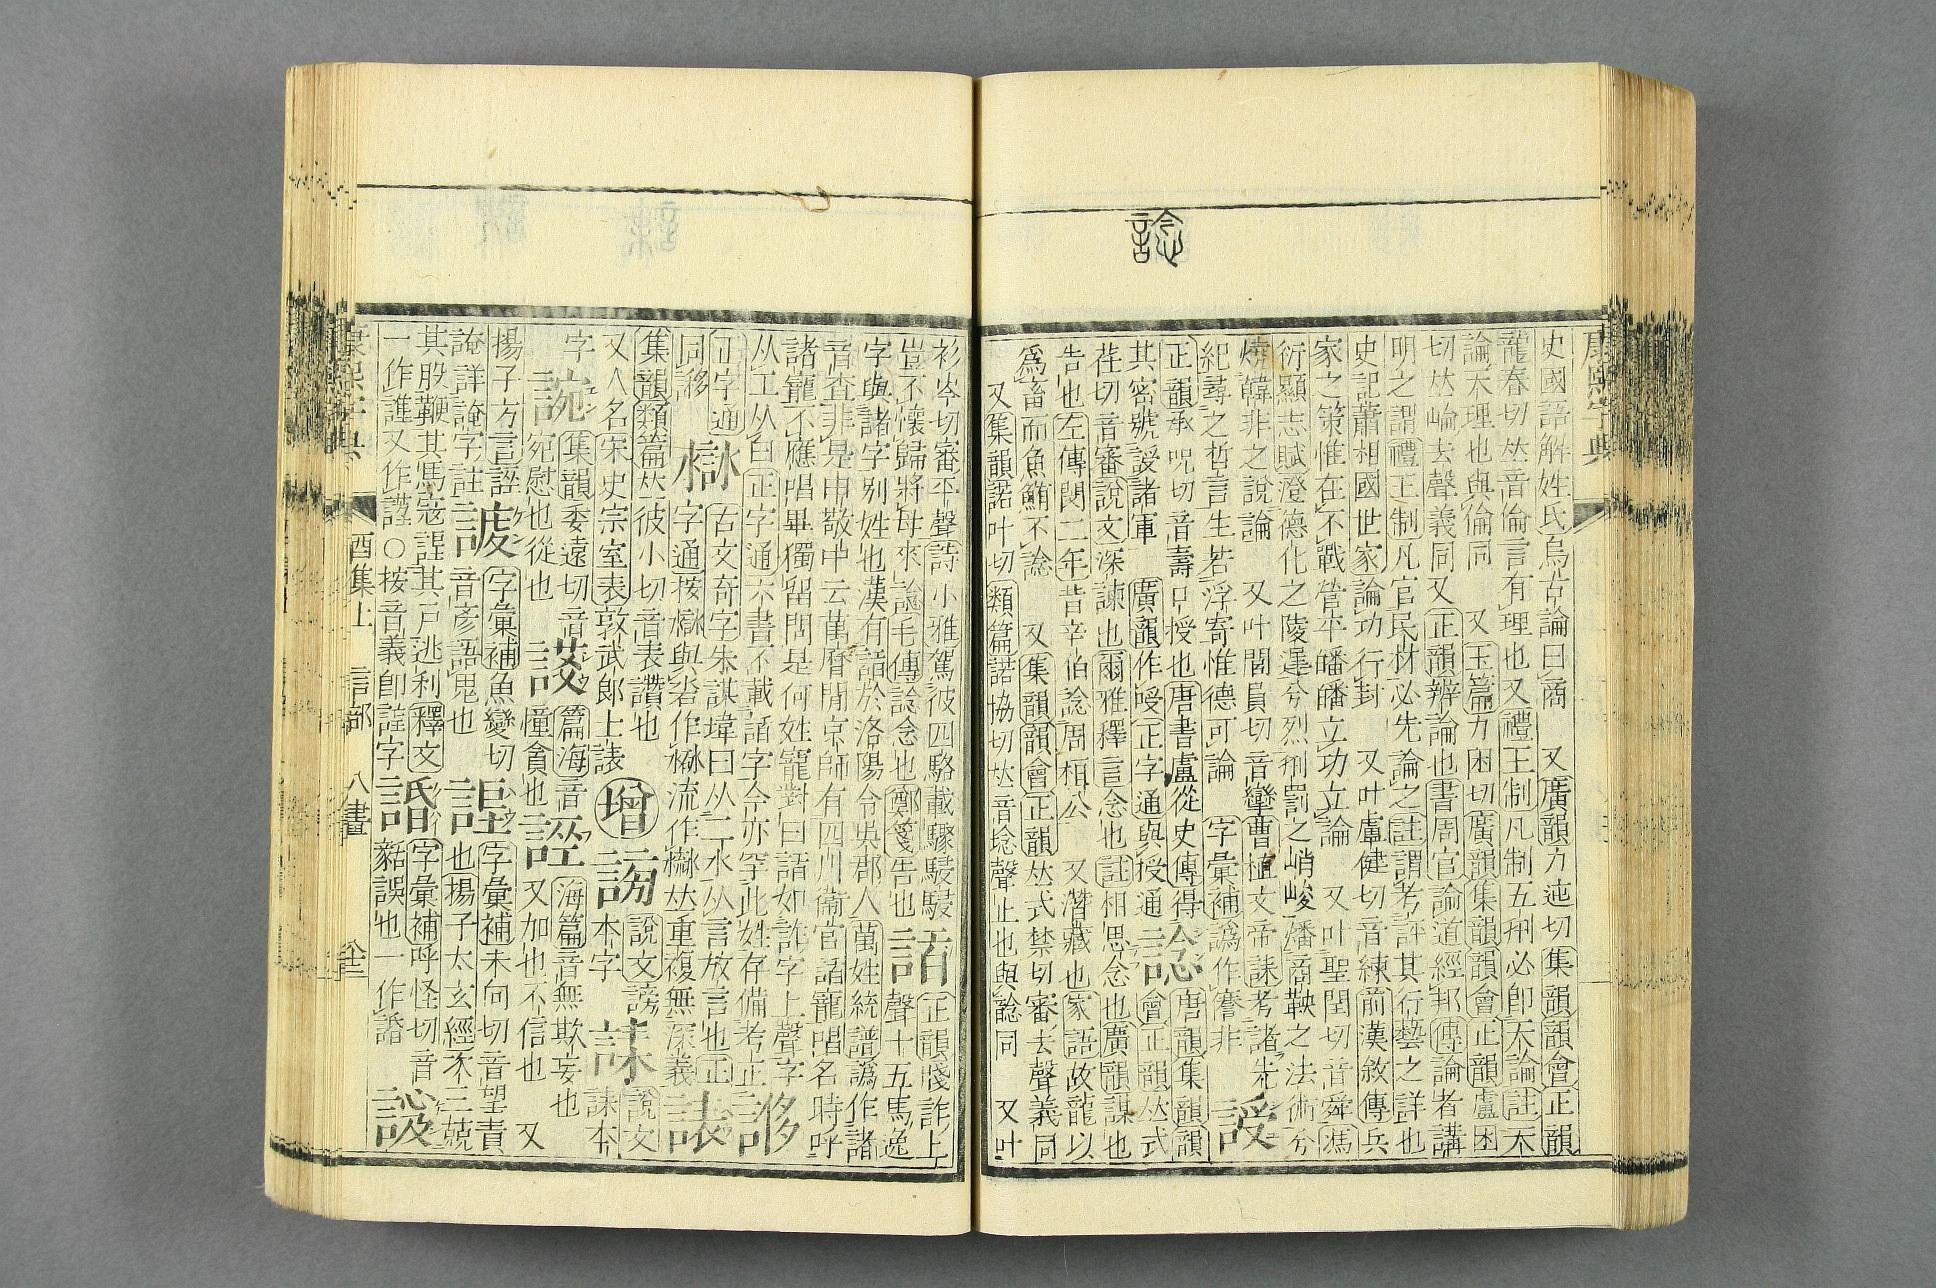 諗
康熙字典
史國語解姓氏烏古論曰商 又廣韻力迍切集韻韻會正韻
龍春切𠀤音倫言有理也又禮王制凡制五刑必卽天論註天
論天理也與倫同 又玉篇力困切廣韻集韻韻會正韻盧困
切𠀤崘去聲義同又正韻辨論也書周官論道經邦傳論者講
明之謂禮王制凡官民材必先論之註謂考評其行藝之詳也
史記蕭相國世家論功行封 又叶盧健切音練前漢敘傳兵
家之策惟在不戰營平皤皤立功立論 又叶聖閏切音舜馮
衍顯志賦澄德化之陵遲兮烈刑罰之峭峻燔商鞅之法術兮
燒韓非之說論 又叶閭員切音攣曹植文帝誄考諸先
紀尋之哲言生若浮寄惟德可論 字彙補譌作謇非
䛵
正韻承呪切音壽口授也唐書盧從史傳得
其密號䛵諸軍 廣韻作㖟正字通與授通
諗
唐韻集韻韻
會正韻𠀤式
荏切音審說文深諫也爾雅釋言念也註相思念也廣韻謀也
告也左傳閔二年昔辛伯諗周桓公 又潛藏也家語故龍以
爲畜而魚鮪不諗 又集韻韻會正韻𠀤式禁切審去聲義同
又集韻諾叶切類篇諾協切𠀤音捻聲止也與諗同 又叶
衫岑切審平聲詩小雅駕彼四駱載驟駸駸
豈不懷歸將母來諗毛傳諗念也鄭箋告也
正韻牋詐上
聲十五馬逸
字與諸字別姓也漢有於洛陽令吳郡人萬姓統譜譌作諸
音查非是申敬中云萬曆閒京師有四川衞官寵唱名時呼
諸寵不應唱畢獨留問是何姓寵對曰如詐字上聲字
从工从白正字通六書不載字今亦罕此姓存備考
誃
正字通
同誃
㵘
古文奇字朱謀㙔曰从二水从言放言也正
字通按㵘與㳫作㵘流作𣹳𠀤重複無深義
諘
集韻類篇𠀤彼小切音表讚也
又人名宋史宗室表敦武郎士諘
增
謗
說文謗
本字
謀
說文
謀本
字
䛷
集韻委遠切音
宛慰也從也
篇海音
憧貪也
誣
海篇音無欺妄也
又加也不信也 又
揚子方言誣
𧩙詳𧩙字註
諺
字彙補魚變切
音彥語鬼也
字彙補未向切音望責
也揚子太玄經不三兢
其股鞭其馬寇其戶逃利釋文
一作謹又作謹○按音義卽謹字
諙
字彙補呼怪切音
䜕誤也一作諙
康熙字典
酉集上 言部 八畫